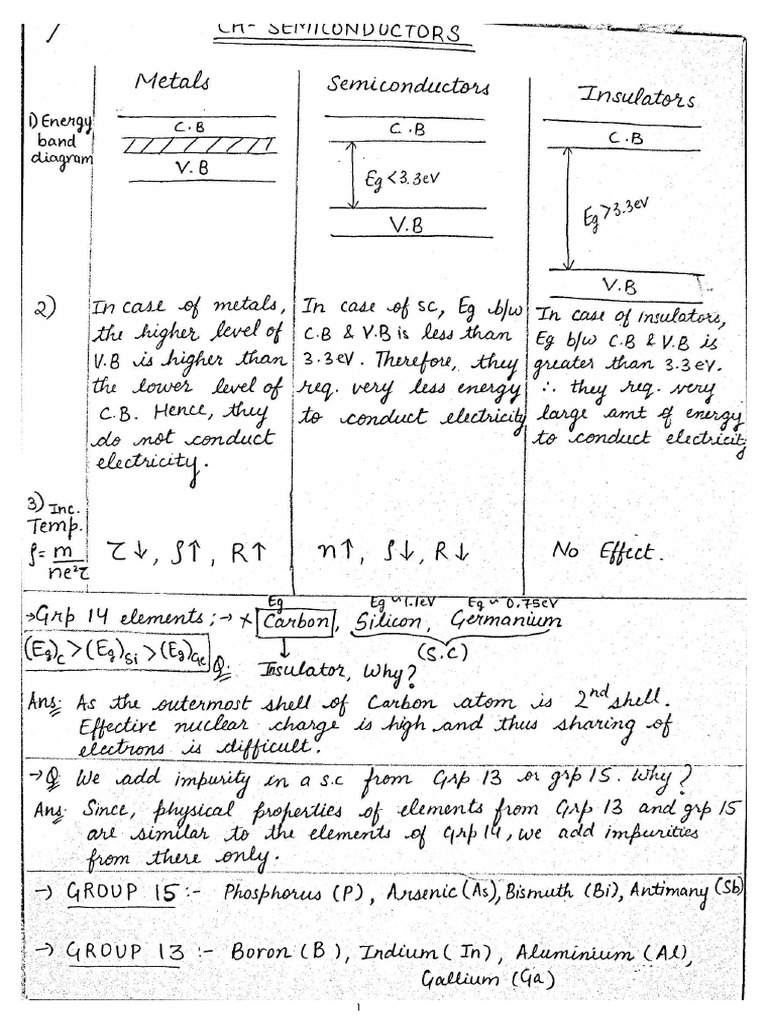 CH- SEMICONDUCTORS
Metals
Semiconductors
Insulators
1) Energy band diagram
C.B
V.B
C.B
Eg < 3.3eV
V.B
C.B
Eg > 3.3eV
V.B
2)
In case of metals,
the higher level of
V.B is higher than
the lower level of
C.B. Hence, they
do not conduct
electricity.
In case of sc, Eg b/w
C.B & V.B is less than
3.3eV. Therefore, they
req. very less energy
to conduct electricity
In case of insulators,
Eg b/w C.B & V.B is
greater than 3.3eV.
∴ they req. very
large amt of energy
to conduct electricity
3) Inc.
Temp.
ρ = m/ne²τ
τ↓, ρ↑, R↑
n↑, ρ↓, R↓
No Effect.
Eg Eg ~ 1.1eV Eg ~ 0.75eV
→ Grp 14 elements :→ x Carbon, Silicon, Germanium
(Eg)c > (Eg)Si > (Eg)Ge
(S.C)
Q. Insulator, Why?
Ans: As the outermost shell of Carbon atom is 2nd shell.
Effective nuclear charge is high and thus sharing of
electrons is difficult.
→ Q We add impurity in a s.c from Grp 13 or grp 15. Why?
Ans: Since, physical properties of elements from Grp 13 and grp 15
are similar to the elements of Grp 14, we add impurities
from there only.
→ GROUP 15 :- Phosphorus (P), Arsenic (As), Bismuth (Bi), Antimany (Sb)
→ GROUP 13 :- Boron (B), Indium (In), Aluminium (Al),
Gallium (Ga)
1